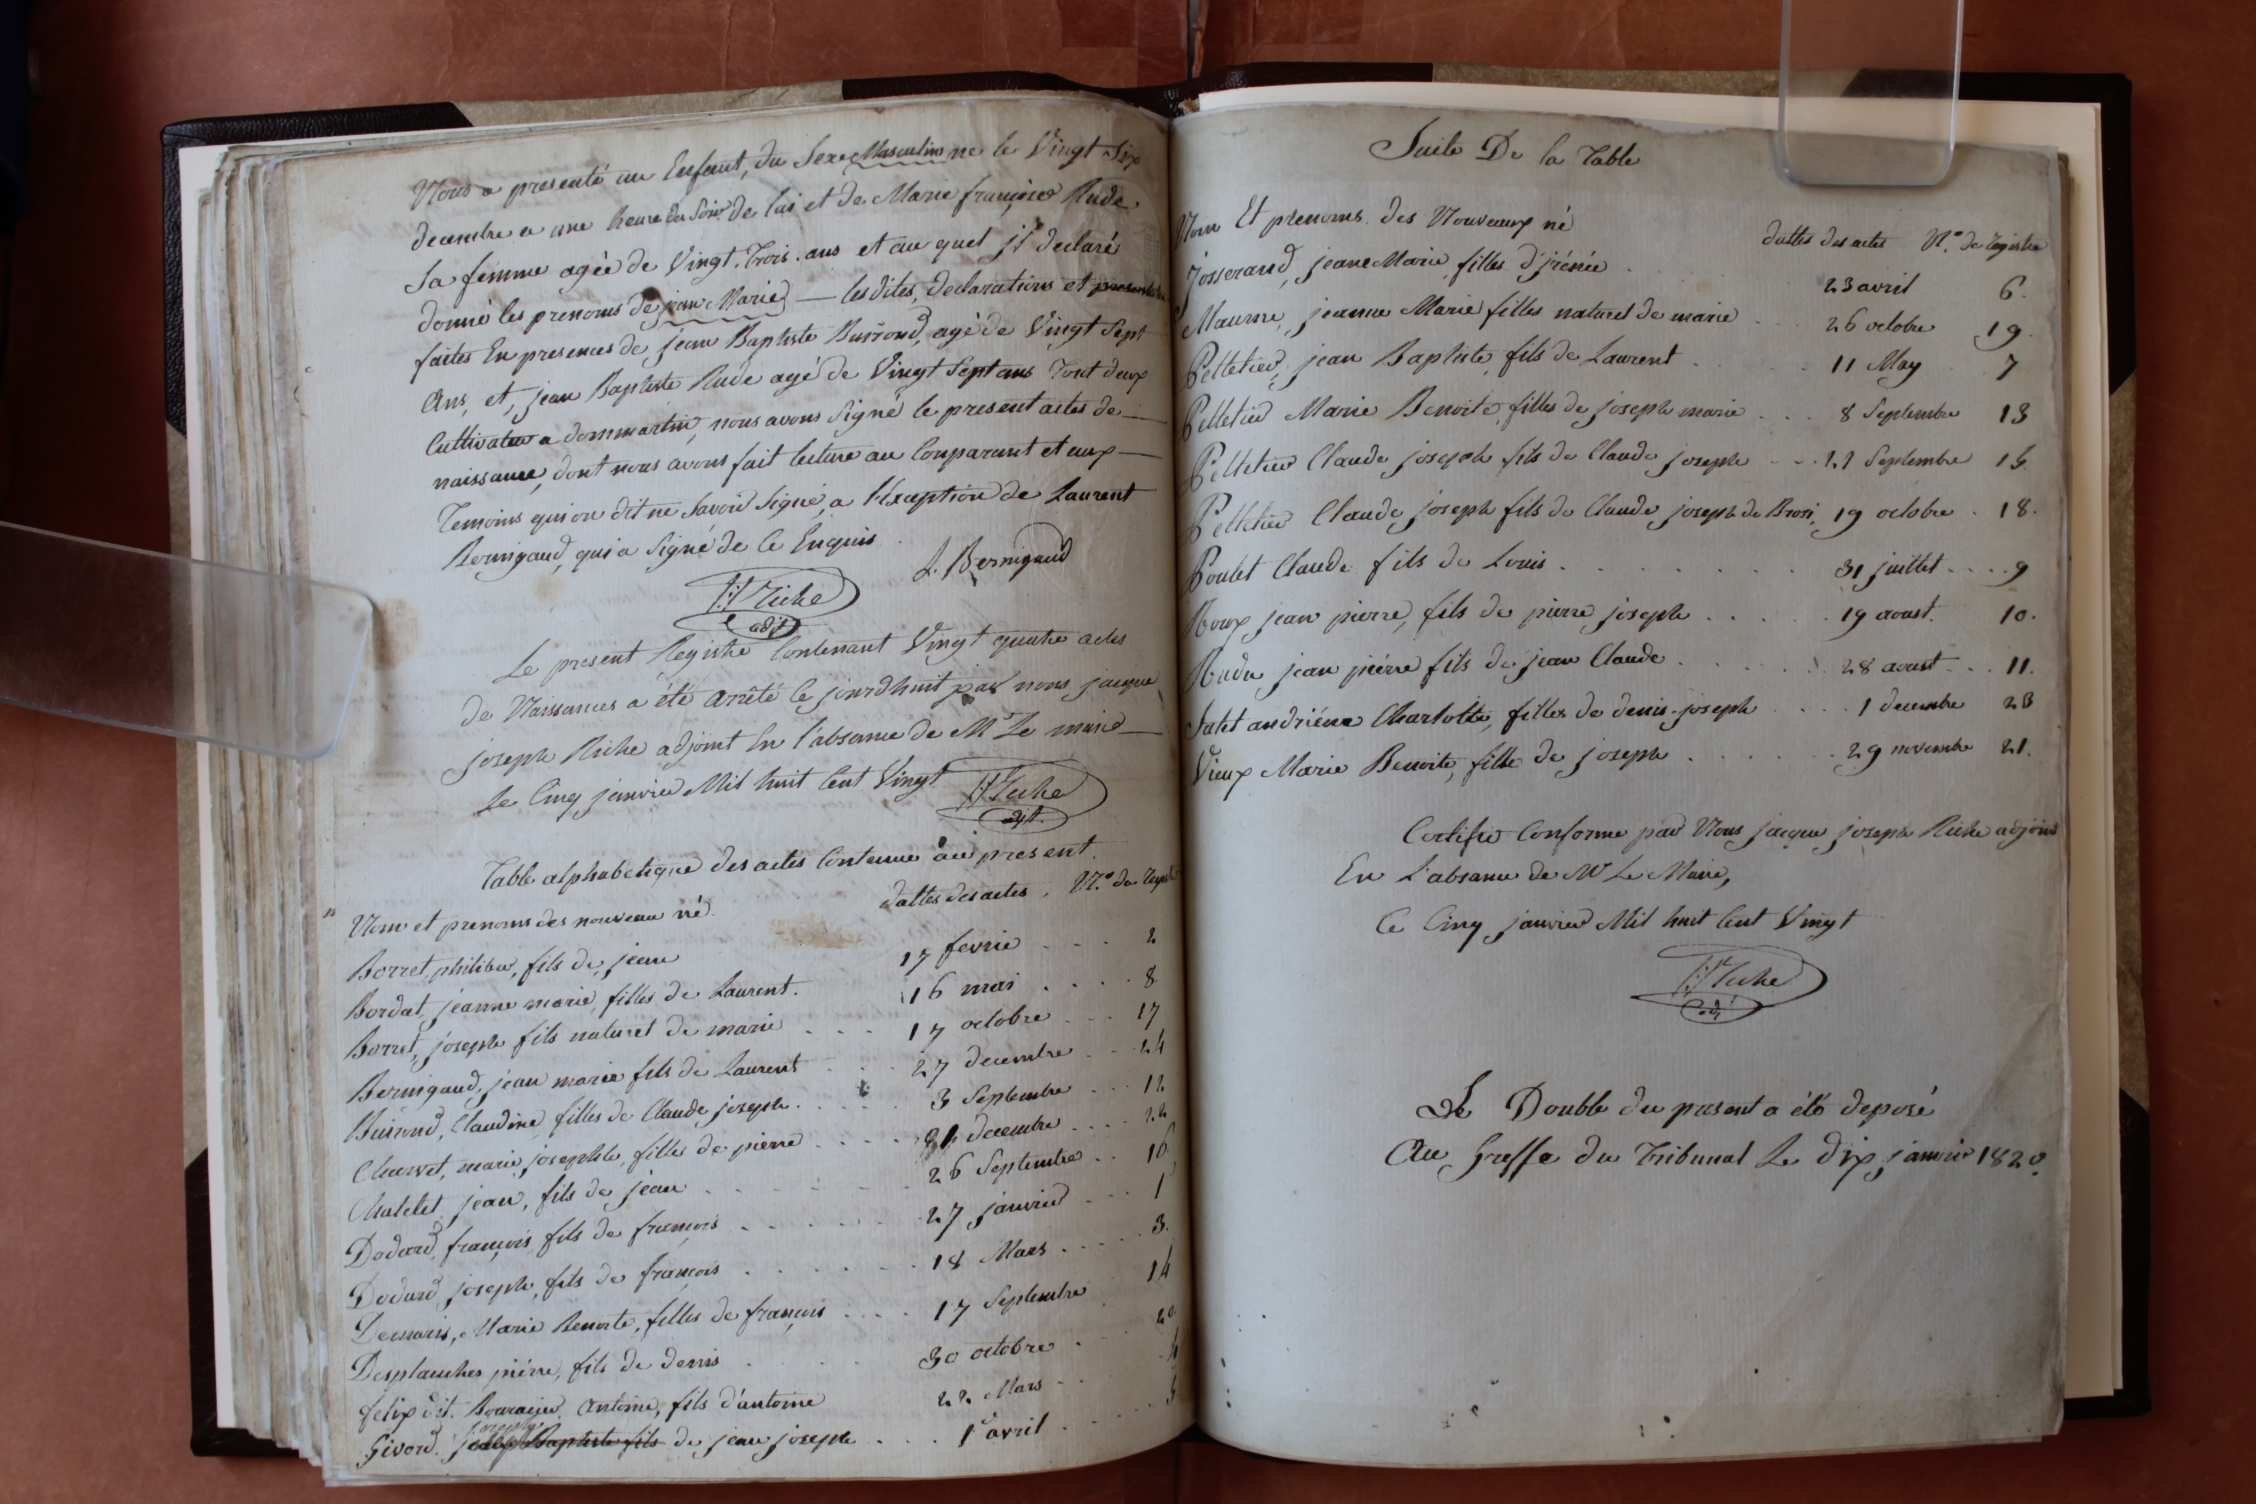 Nous a presenté un Enfant, du Sexe Masculins né le Vingt Six
decembre a une heure du Soir de lui et de Marie françoise Rude
Sa femme agée de Vingt Trois ans et au quel il declaré
donné les prenoms de jean Marie — les dites declarations et
faites En presences de jean Baptiste Buirond, agé de Vingt Sept
Ans, et, jean Baptiste Rude agé de Vingt Sept ans Tout deux
Cultivateur a dommartin, nous avons Signé le present actes de —
naissance, dont nous avons fait lecture au Comparant et aux —
Temoins qui on dit ne Savoir Signé, a l'Exception de Laurent
Bernigaud, qui a Signé de Ce Enquis
L. Bernigaud
Riche
adjt
Le present Registre Contenant Vingt quatre actes
de Naissances a été arrêté le jourdhuit par nous jacque
joseph Riche adjoint En l'absance de Mr Le maire —
Le Cinq janvier Mil huit Cent Vingt
Riche
adjt.
Table alphabetique des actes Contenue au present.
Nom et prenoms des nouveau né dattes des actes. N.o du
Borret philiber, fils de jean 17 fevrie 2
Bordat jeanne marie, filles de Laurent. 16 mai 8
Borret, joseph fils naturel de marie 17 octobre 17
Bernigaud, jean marie fils de Laurent 27 decembre 24
Buirond, Claudine filles de Claude joseph. 3 Septembre 12
Charvet, marie josephte, filles de pierre decembre 22
Chatelet jean, fils de jean 26 Septembre 16
Dodard, françois fils de françois 27 janvier 1
Dodard joseph, fils de françois 18 Mars 3.
Demaris, Marie Benoite, filles de françois 17 Septembre 14
Desplanches piérre, fils de denis 30 octobre 20
felix dit Antoine, fils d'antoine 22 Mars 4
joseph
Givord. Baptiste fils de jean joseph 1er avril 5
Suite De la Table
Nom Et prenoms des Nouveaux né dattes des actes N.o de Registre
Josserand, jeane Marie filles d'jrénée 23 avril 6.
Maurne, jeanne Marie filles naturel de marie 26 octobre 19.
Pelletier, jean Baptiste, fils de Laurent 11 May 7
Pelletier Marie Benoite, filles de joseph marie 8 Septembre 13
Pelletier Claude joseph fils de Claude joseph 21 Septembre 15.
Pelletier Claude joseph fils de Claude joseph de Brosi, 19 octobre 18.
Poulet Claude fils de Louis 31 juillet 9
Roux jean pierre, fils de pierre joseph 19 aoust. 10.
Rude jean piérre fils de jean Claude 28 aoust 11.
andriéne Charlotte, filles de denis-joseph 1 decembre 23
Vieux Marie Benoite, fille de joseph 29 novembre 21.
Certifié Conforme par Nous jacque joseph Riche adjoint
En L'absance de Mr Le Maire,
Ce Cinq janvier Mil huit Cent Vingt
Riche
adj
Le Double du present a été deposé
Au Greffe du Tribunal Le dix janvier 1820.